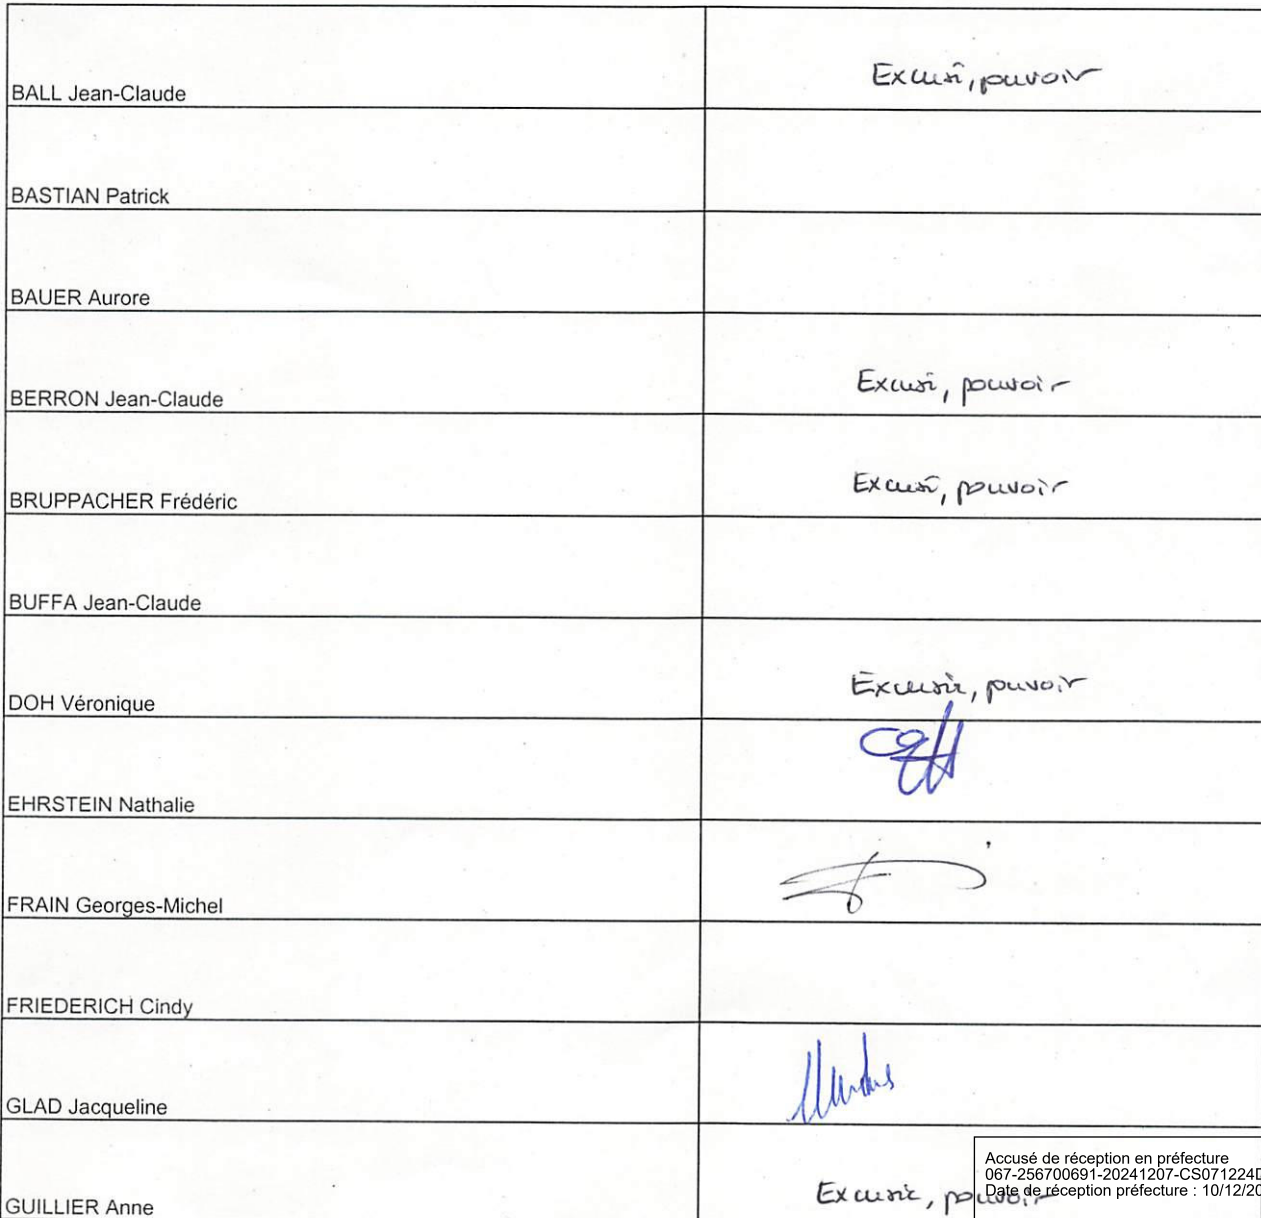 BALL Jean-Claude
Excusé, pouvoir
BASTIAN Patrick
BAUER Aurore
BERRON Jean-Claude
Excusé, pouvoir
BRUPPACHER Frédéric
Excusé, pouvoir
BUFFA Jean-Claude
DOH Véronique
Excusée, pouvoir
EHRSTEIN Nathalie
FRAIN Georges-Michel
FRIEDERICH Cindy
GLAD Jacqueline
GUILLIER Anne
Excusée, pouvoir
Accusé de réception en préfecture
067-256700691-20241207-CS071224D
Date de réception préfecture : 10/12/20